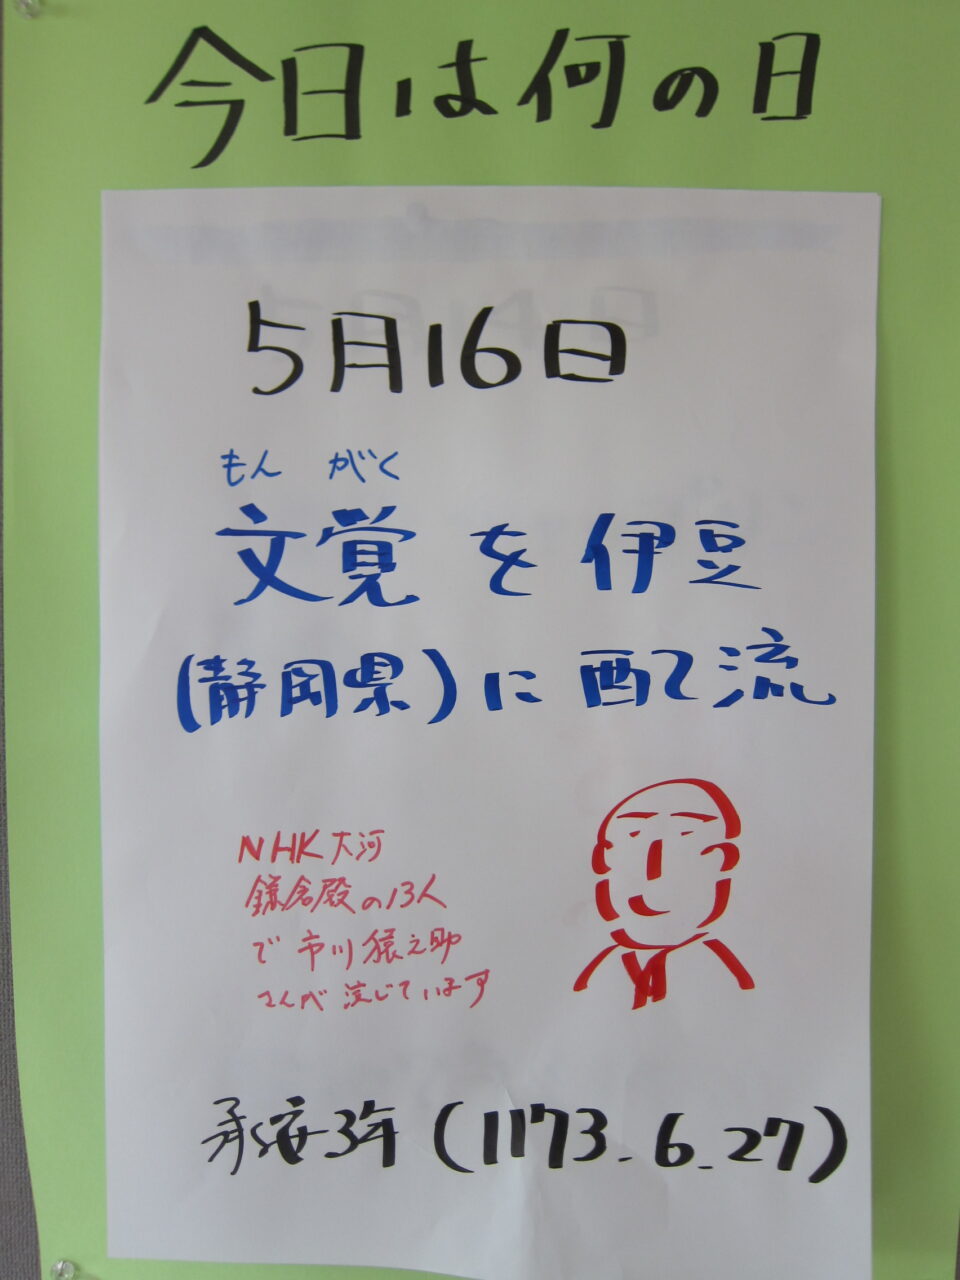 今日は何の日
5月16日
もん がく
文覚を伊豆
(静岡県)に配流
NHK大河
鎌倉殿の13人
で市川猿之助
さんが演じています
承安3年(1173.6.27)